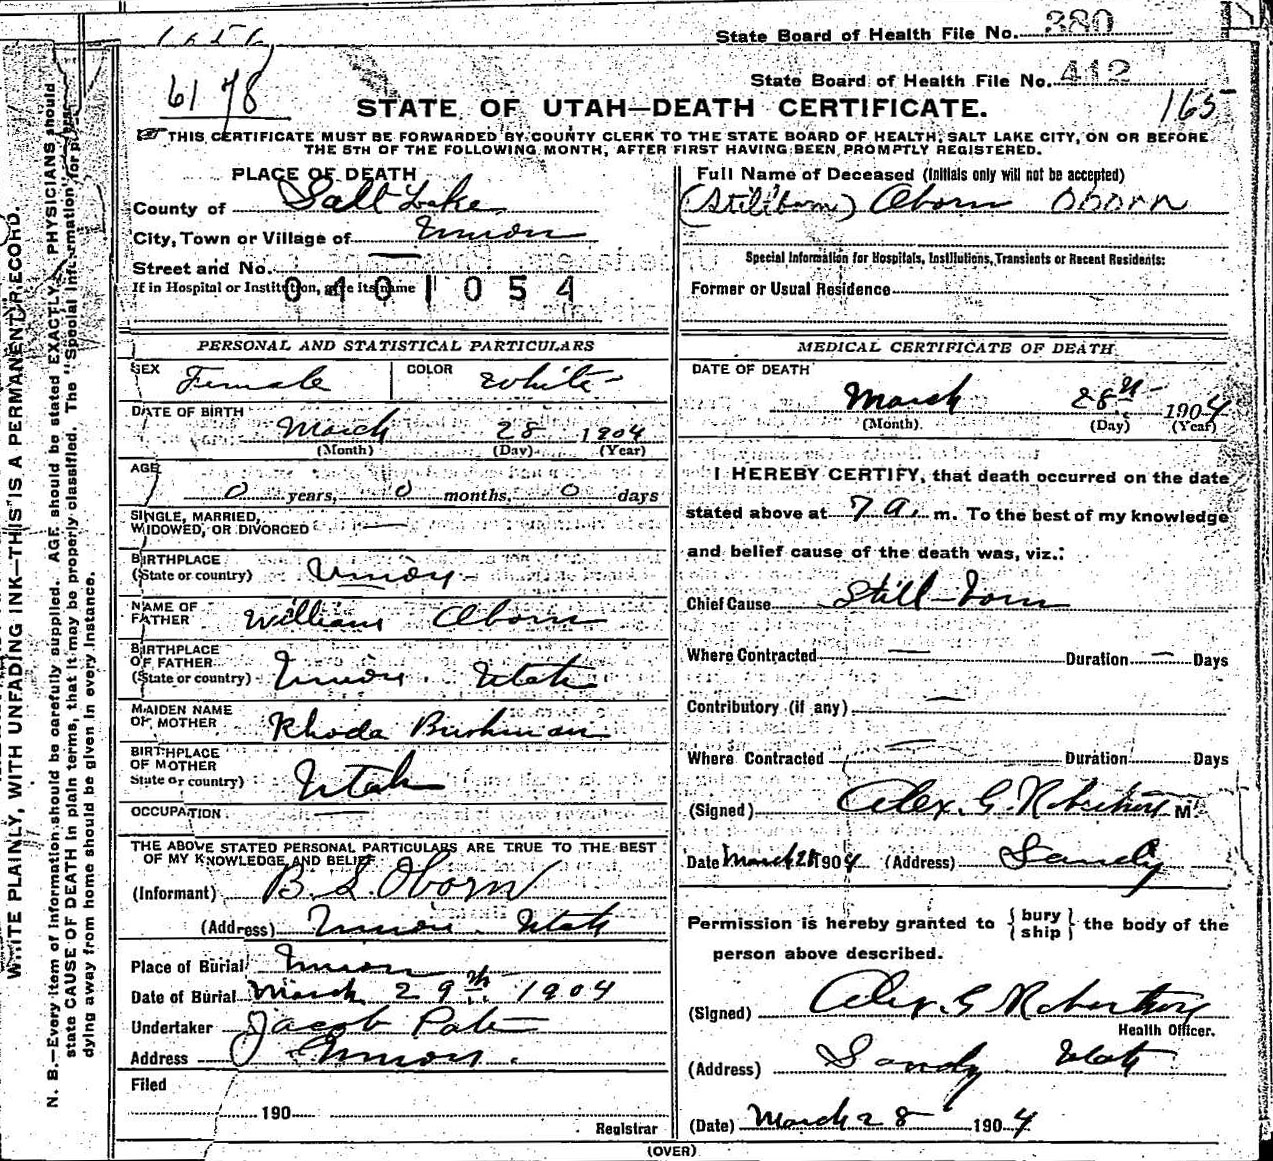 State Board of Health File No. 380
State Board of Health File No. 412
6178
165
STATE OF UTAH—DEATH CERTIFICATE.
THIS CERTIFICATE MUST BE FORWARDED BY COUNTY CLERK TO THE STATE BOARD OF HEALTH, SALT LAKE CITY, ON OR BEFORE
THE 5TH OF THE FOLLOWING MONTH, AFTER FIRST HAVING BEEN PROMPTLY REGISTERED.
WRITE PLAINLY, WITH UNFADING INK—THIS IS A PERMANENT RECORD.
N. B.—Every item of information should be carefully supplied. AGE should be stated EXACTLY. PHYSICIANS should
state CAUSE OF DEATH in plain terms, that it may be properly classified. The "Special Information" for persons
dying away from home should be given in every instance.
PLACE OF DEATH
County of Salt Lake
City, Town or Village of Union
Street and No. —
If in Hospital or Institution, give its name
0401054
Full Name of Deceased (Initials only will not be accepted)
(Stillborn) Oborn Oborn
Special Information for Hospitals, Institutions, Transients or Recent Residents:
Former or Usual Residence
PERSONAL AND STATISTICAL PARTICULARS
SEX Female COLOR White
DATE OF BIRTH
March 28 1904
(Month) (Day) (Year)
AGE
0 years, 0 months, 0 days
SINGLE, MARRIED,
WIDOWED, OR DIVORCED —
BIRTHPLACE
(State or country) Union
NAME OF
FATHER William Oborn
BIRTHPLACE
OF FATHER
(State or country) Union Utah
MAIDEN NAME
OF MOTHER Rhoda Burkman
BIRTHPLACE
OF MOTHER
State or country) Utah
OCCUPATION —
THE ABOVE STATED PERSONAL PARTICULARS ARE TRUE TO THE BEST
OF MY KNOWLEDGE AND BELIEF
(Informant) B. S. Oborn
(Address) Union Utah
Place of Burial Union
Date of Burial March 29th 1904
Undertaker Jacob Pate
Address Union.
Filed
190
Registrar
MEDICAL CERTIFICATE OF DEATH
DATE OF DEATH
March 28th 1904
(Month) (Day) (Year)
I HEREBY CERTIFY, that death occurred on the date
stated above at 7 a. m. To the best of my knowledge
and belief cause of the death was, viz.:
Chief Cause Still-born
Where Contracted — Duration — Days
Contributory (if any) —
Where Contracted — Duration Days
(Signed) Alex. G. Robertson M.
Date March 28 1904 (Address) Sandy
Permission is hereby granted to { bury ship } the body of the
person above described.
(Signed) Alex. G Robertson
Health Officer.
(Address) Sandy Utah
(Date) March 28 1904
(OVER)